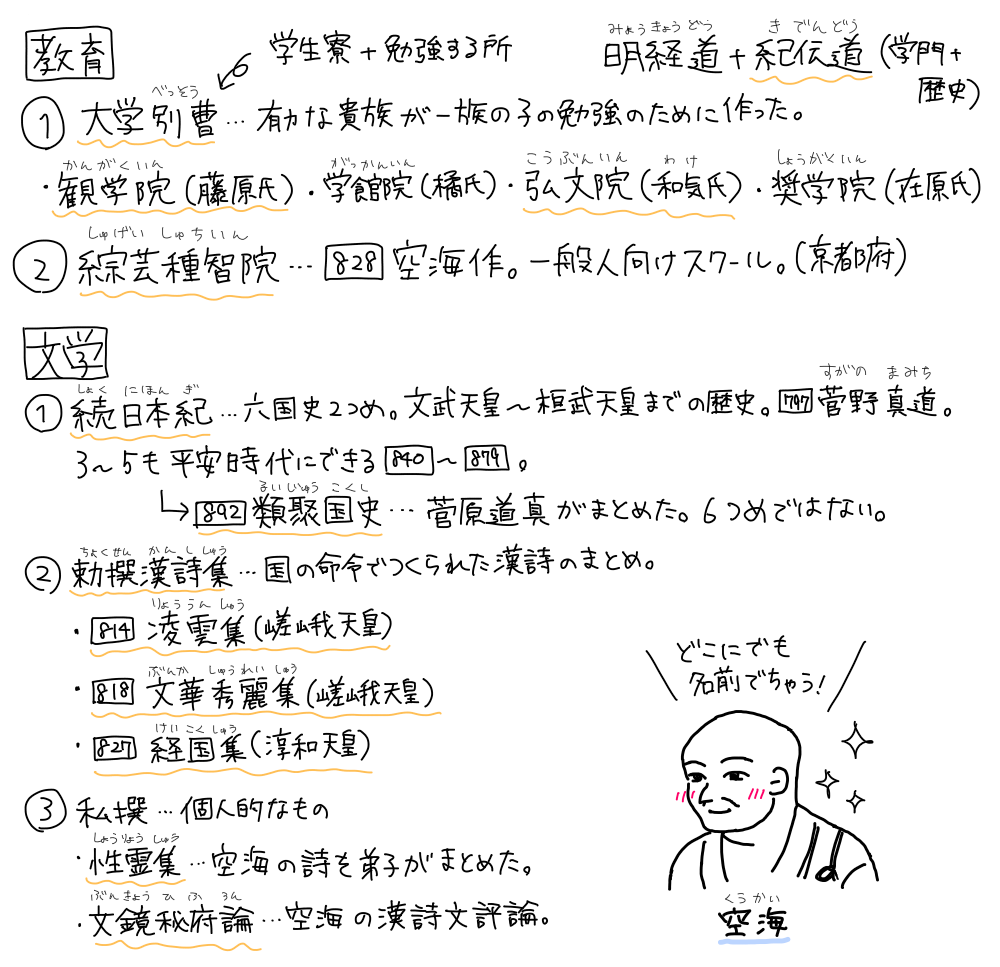 教育
学生寮+勉強する所
みょうきょうどう きでんどう
明経道+紀伝道(学門+歴史)
べっそう
① 大学別曹…有力な貴族が一族の子の勉強のために作った。
かんがくいん がっかんいん こうぶんいん わけ しょうがくいん
・観学院(藤原氏)・学館院(橘氏)・弘文院(和気氏)・奨学院(在原氏)
しゅげいしゅちいん
② 綜芸種智院…828 空海作。一般人向けスクール。(京都府)
文学
しょくにほんぎ すがのまみち
① 続日本紀…六国史2つめ。文武天皇〜桓武天皇までの歴史。797 菅野真道。
3〜5も平安時代にできる 840〜879。
るいじゅうこくし
↳ 892 類聚国史…菅原道真がまとめた。6つめではない。
ちょくせんかんししゅう
② 勅撰漢詩集…国の命令でつくられた漢詩のまとめ。
りょううんしゅう
・814 凌雲集(嵯峨天皇)
ぶんかしゅうれいしゅう
・818 文華秀麗集(嵯峨天皇)
けいこくしゅう
・827 経国集(淳和天皇)
③ 私撰…個人的なもの
しょうりょうしゅう
・性霊集…空海の詩を弟子がまとめた。
ぶんきょうひふろん
・文鏡秘府論…空海の漢詩文評論。
どこにでも
名前でちゃう!
くうかい
空海